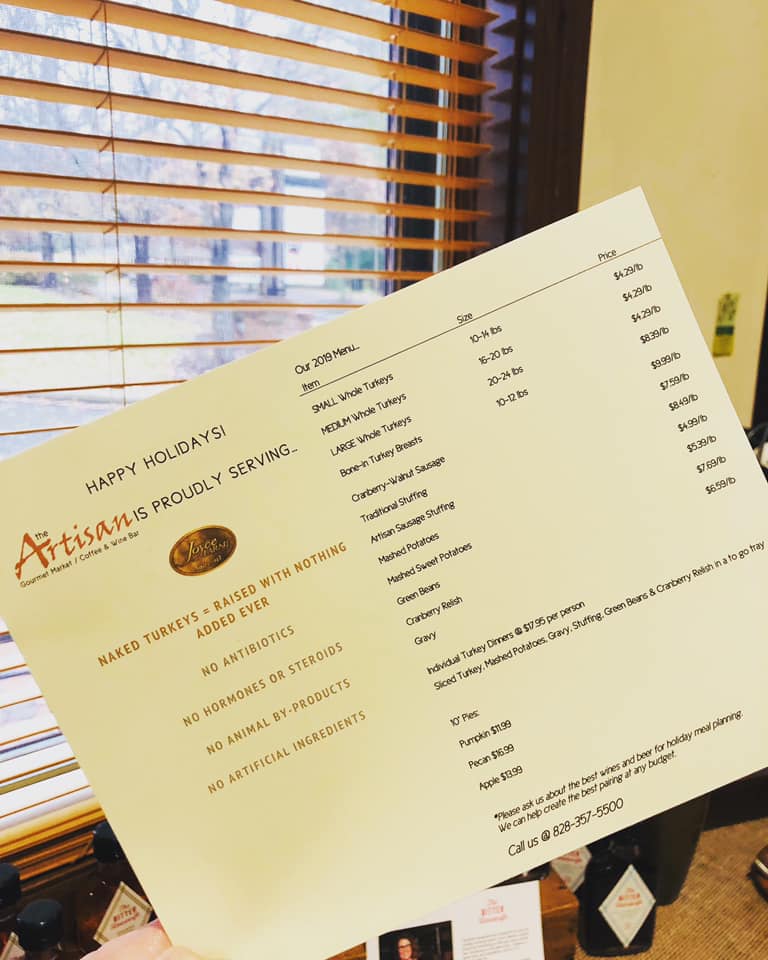 HAPPY HOLIDAYS!
the Artisan IS PROUDLY SERVING...
Gourmet Market / Coffee & Wine Bar
Joyce
NAKED TURKEYS = RAISED WITH NOTHING
ADDED EVER
NO ANTIBIOTICS
NO HORMONES OR STEROIDS
NO ANIMAL BY-PRODUCTS
NO ARTIFICIAL INGREDIENTS
Our 2019 Menu...
Item Size Price
SMALL Whole Turkeys 10-14 lbs $4.29/lb
MEDIUM Whole Turkeys 16-20 lbs $4.29/lb
LARGE Whole Turkeys 20-24 lbs $4.29/lb
Bone-in Turkey Breasts 10-12 lbs $8.39/lb
Cranberry-Walnut Sausage $9.99/lb
Traditional Stuffing $7.59/lb
Artisan Sausage Stuffing $8.49/lb
Mashed Potatoes $4.99/lb
Mashed Sweet Potatoes $5.39/lb
Green Beans $7.69/lb
Cranberry Relish $6.59/lb
Gravy
Individual Turkey Dinners @ $17.95 per person
Sliced Turkey, Mashed Potatoes, Gravy, Stuffing, Green Beans & Cranberry Relish in a to go tray
10" Pies:
Pumpkin $11.99
Pecan $16.99
Apple $13.99
*Please ask us about the best wines and beer for holiday meal planning.
We can help create the best pairing at any budget.
Call us @ 828-357-5500
The
BITTER
The
BITTER
The
BITTER